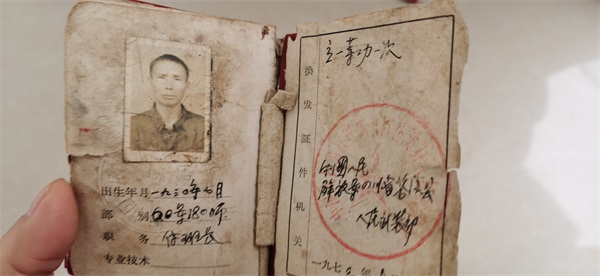 出生年月一九三〇年七月
部别60军180师
职务付班长
专业技术
立一等功一次
换发证件机关
中国人民
解放军四川省
人民武装部
一九七